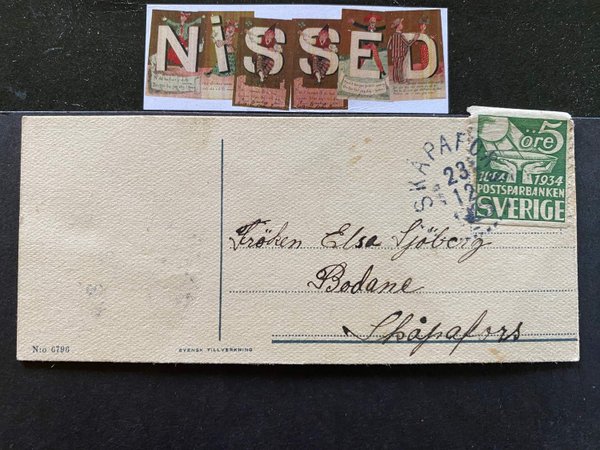 NiSSED
SKÅPAFOR
23
12
öre 5
1934
POSTSPARBANKEN
SVERIGE
Fröken Elsa Sjöberg
Bodane
Skåpafors
Nio 6796
SVENSK TILLVERKNING